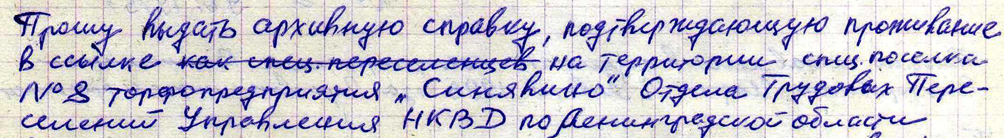 Прошу выдать архивную справку, подтверждающую проживание
в ссылке как спец.переселенцев на территории спец.поселка
№8 торфопредприятия „Синявино" Отдела Трудовых Пере-
селений Управления НКВД по Ленинградской области